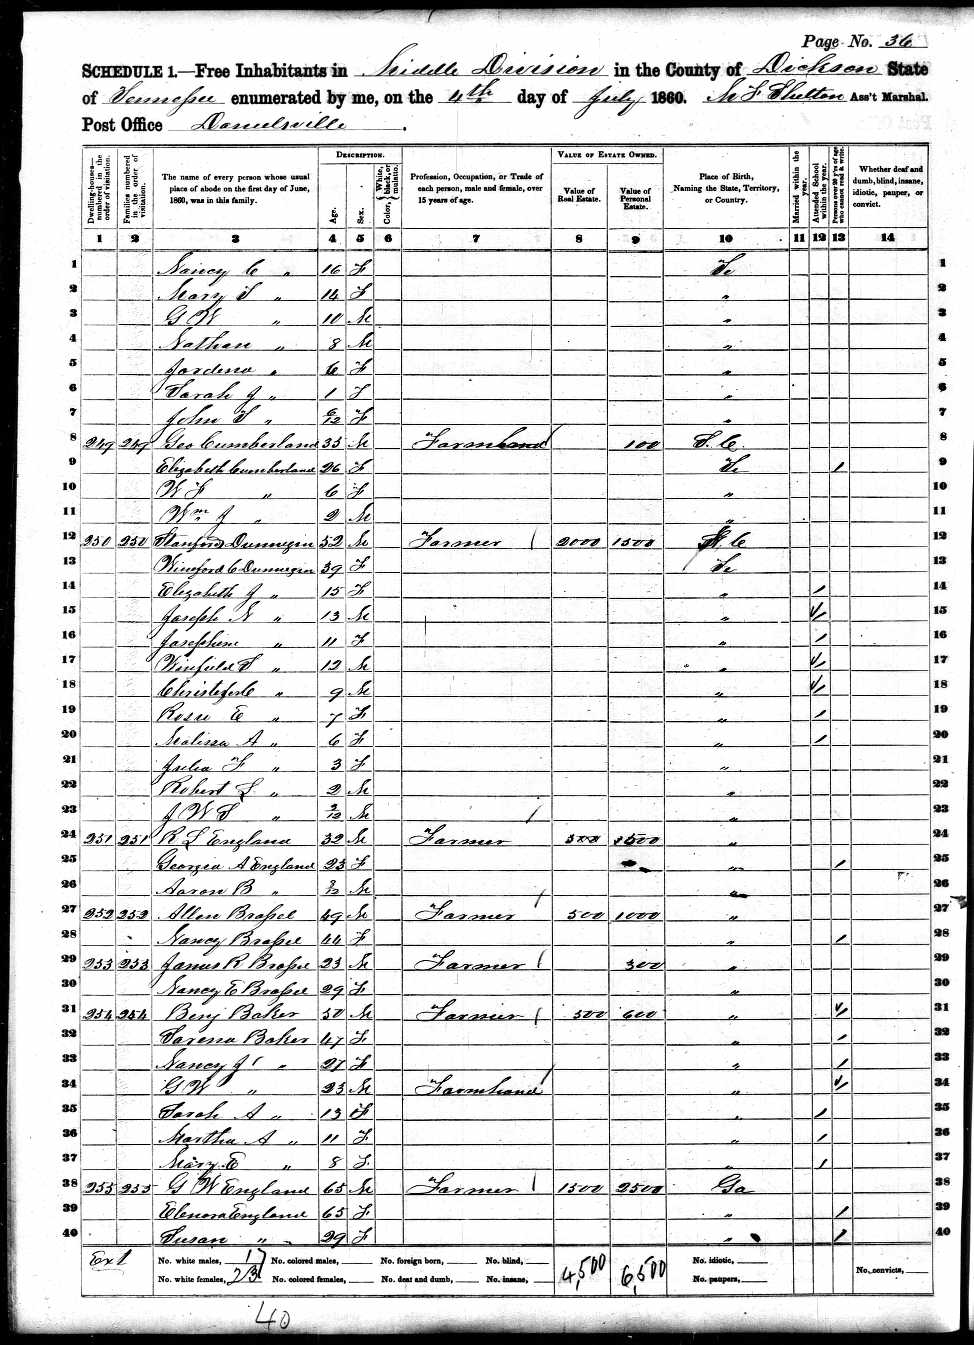 Page No. 36
SCHEDULE 1.—Free Inhabitants in Middle Division in the County of Dickson State
of Tennessee enumerated by me, on the 4th day of July 1860. M F Shelton Ass't Marshal.
Post Office Danielsville .
Dwelling-houses—numbered in the order of visitation. Families numbered in the order of visitation. The name of every person whose usual place of abode on the first day of June, 1860, was in this family. DESCRIPTION. Age. Sex. Color, White, black, or mulatto. Profession, Occupation, or Trade of each person, male and female, over 15 years of age. VALUE OF ESTATE OWNED. Value of Real Estate. Value of Personal Estate. Place of Birth, Naming the State, Territory, or Country. Married within the year. Attended School within the year. Persons over 20 y'rs of age who cannot read & write. Whether deaf and dumb, blind, insane, idiotic, pauper, or convict.
1 2 3 4 5 6 7 8 9 10 11 12 13 14
1 Nancy C " 16 F Te 1
2 Mary S " 14 F " 2
3 G W " 10 M " 3
4 Nathan " 8 M " 4
5 " 6 F " 5
6 Sarah J " 1 F " 6
7 John S " 6/12 F " 7
8 249 249 Geo Cumberland 35 M Farmhand 100 S. C. 8
9 Elizabeth Cumberland 26 F Te / 9
10 W F " 6 F " 10
11 Wm J " 2 M " 11
12 250 250 Stanford Dunnegan 52 M Farmer / 2000 1500 N C 12
13 Wineford C Dunnegan 39 F Te 13
14 Elizabeth J " 15 F " / 14
15 Joseph N " 13 M " / 15
16 Josephine " 11 F " / 16
17 Winfield S " 12 M " / 17
18 " 9 M " / 18
19 Rosie E " 7 F " / 19
20 Malissa A " 6 F " / 20
21 Julia F " 3 F " 21
22 Robert L " 2 M " 22
23 J W S " 2/12 M / " 23
24 251 251 R L England 32 M Farmer 500 500 " 24
25 Georgia A England 23 F " / 25
26 Aaron B " M " 26
27 252 252 Allen Brassel 49 M Farmer / 500 1000 " 27
28 Nancy Brassel 44 F " / 28
29 253 253 James R Brassel 23 M Farmer / 300 " 29
30 Nancy E Brassel 29 F " 30
31 254 254 Benj Baker 50 M Farmer / 500 600 " / 31
32 Sarena Baker 47 F " / 32
33 Nancy J " 27 F " / 33
34 G W " 23 M Farmhand / " / 34
35 Sarah A " 13 F " / 35
36 Martha A " 11 F " / 36
37 Mary E " 8 F " / 37
38 255 255 G W England 65 M Farmer / 1500 2500 Ga 38
39 Elenora England 65 F " / 39
40 Susan " 29 F " / 40
No. white males, 17 No. colored males, No. foreign born, No. blind, 4,500 6,500 No. idiotic,
No. white females, 23 No. colored females, No. deaf and dumb, No. insane, No. paupers, No. convicts,
40